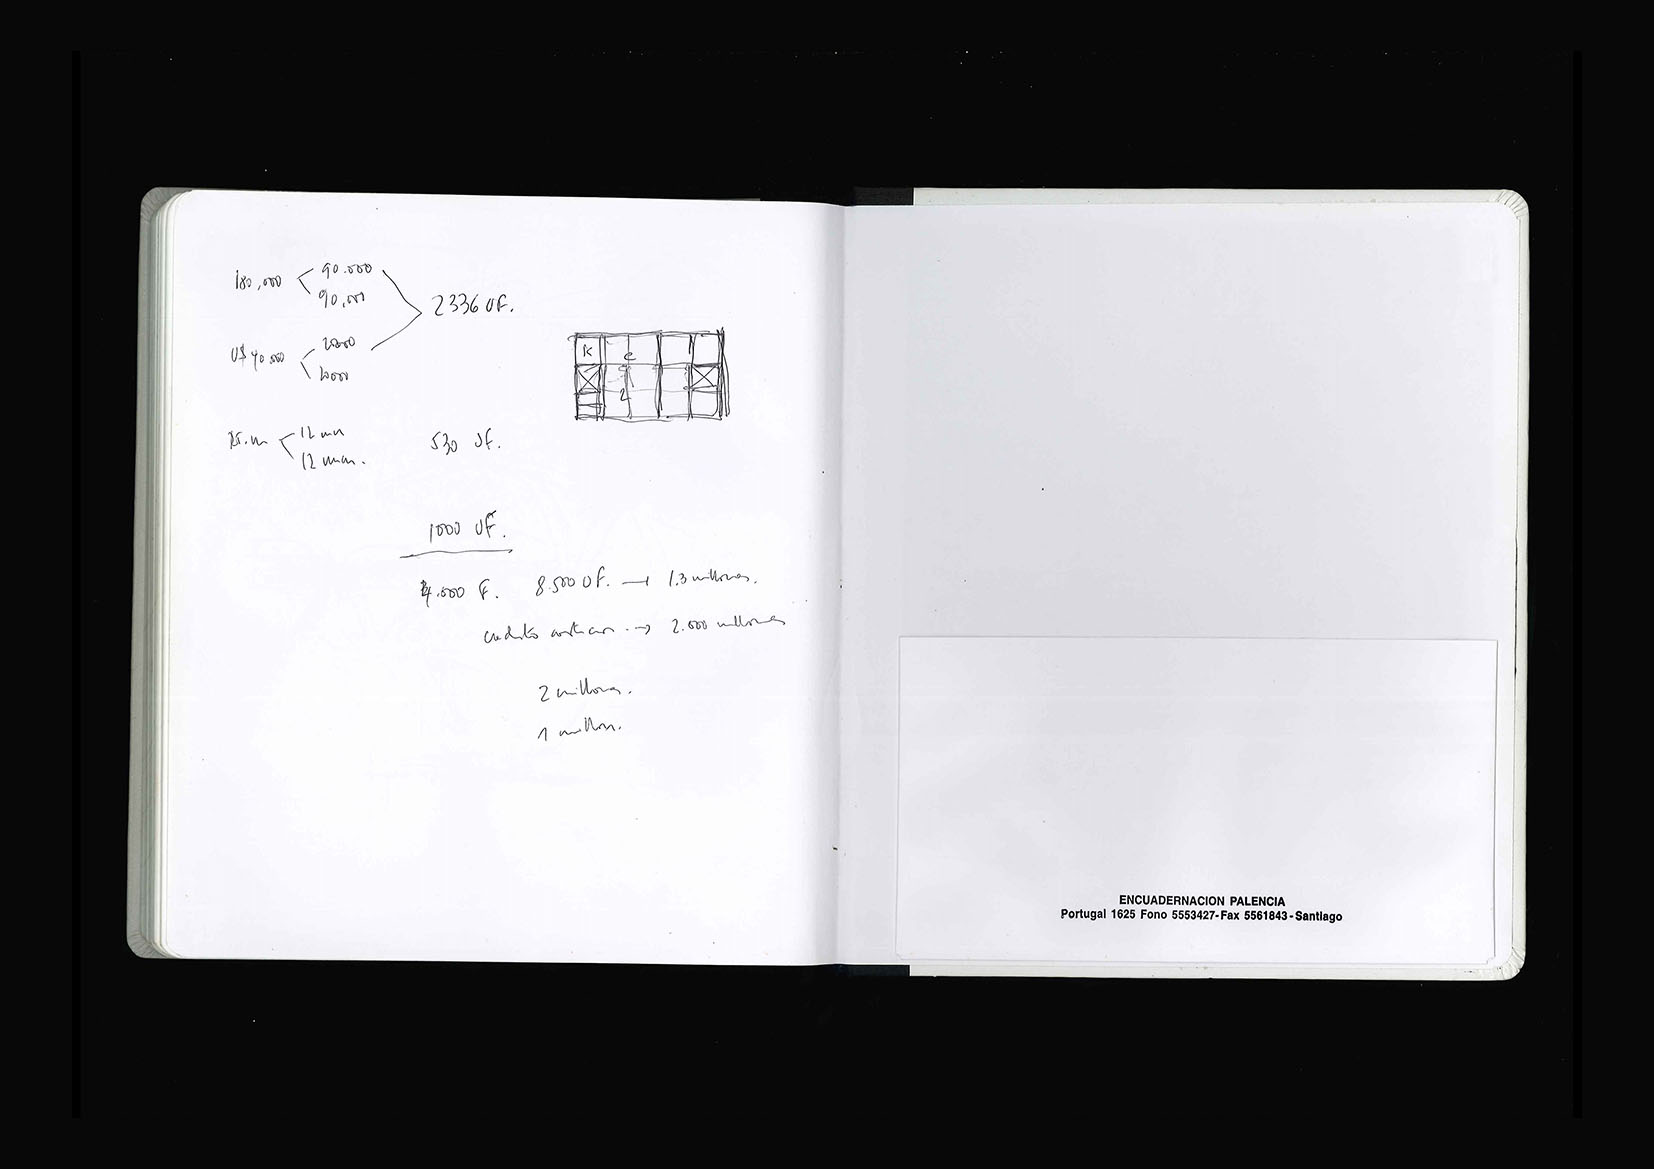 180,000 < 90.000
90,000
2336 UF.
U$ 40.000
20000
20000
K
c
2
12 mm
12 mm.
530 UF.
1000 UF.
4.000 F. 8.500 UF. → 1.3 millones.
→ 2.000 millones
2 millones.
1 millon.
ENCUADERNACION PALENCIA
Portugal 1625 Fono 5553427-Fax 5561843-Santiago